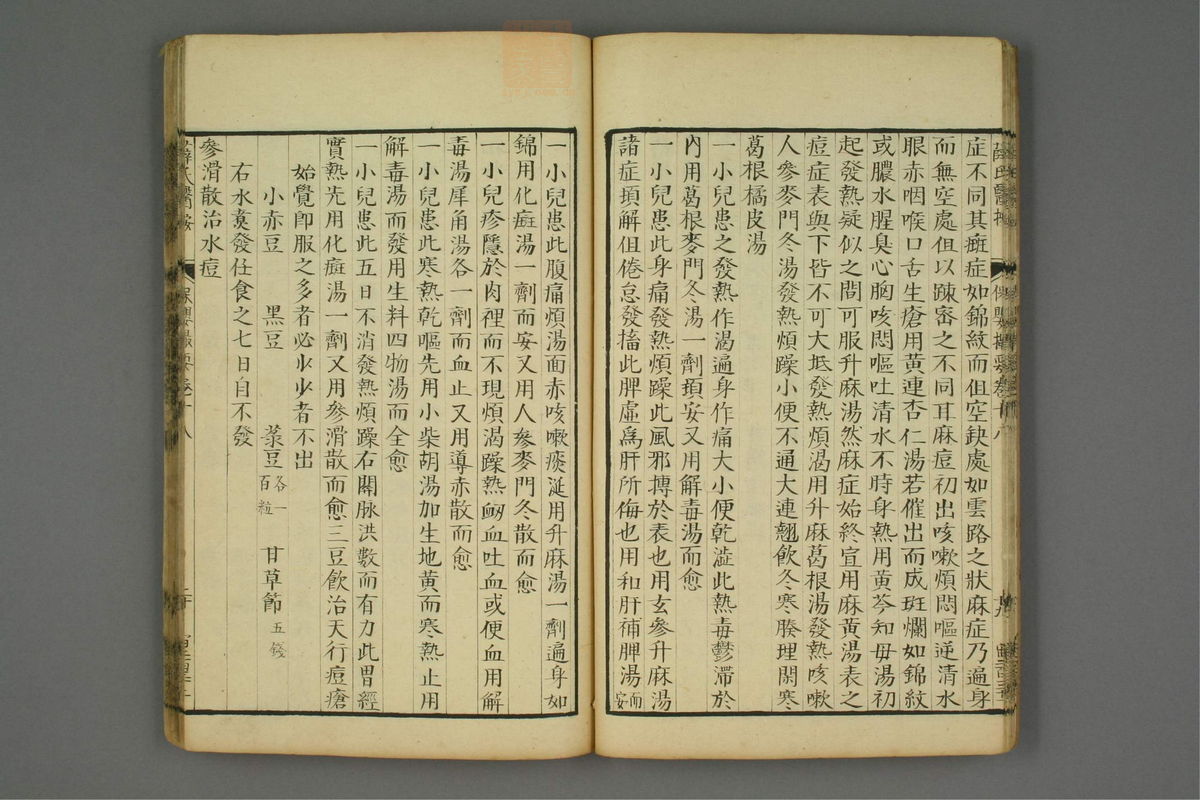 症不同其癍症如錦紋而但空缺處如雲路之狀麻症乃遍身
而無空處但以踈密之不同耳麻痘初出咳嗽煩悶嘔逆清水
眼赤咽喉口舌生瘡用黃連杏仁湯若催出而成斑爛如錦紋
或膿水腥臭心胸咳悶嘔吐清水不時身熱用黃芩知毋湯初
起發熱疑似之間可服升麻湯然麻症始終宜用麻黃湯表之
痘症表與下皆不可大抵發熱煩渴用升麻葛根湯發熱咳嗽
人參麥門冬湯發熱煩躁小便不通大連翹飲冬寒腠理閉寒
葛根橘皮湯
一小兒患之發熱作渴遍身作痛大小便乾澁此熱毒鬱滯於
內用葛根麥門冬湯一劑頓安又用解毒湯而愈
一小兒患此身痛發熱煩躁此風邪摶於表也用玄參升麻湯
諸症頓解但倦怠發搐此脾虛爲肝所侮也用和肝補脾湯而安
一小兒患此腹痛煩渴面赤咳嗽痰涎用升麻湯一劑遍身如
錦用化癍湯一劑而安又用人參麥門冬散而愈
一小兒疹隱於肉裡而不現煩渴躁熱衂血吐血或便血用解
毒湯犀角湯各一劑而血止又用導赤散而愈
一小兒患此寒熱乾嘔先用小柴胡湯加生地黃而寒熱止用
解毒湯而發用生料四物湯而全愈
一小兒患此五日不消發熱煩躁右關脉洪數而有力此胃經
實熱先用化癍湯一劑又用參滑散而愈三豆飲治天行痘瘡
始覺卽服之多者必少少者不出
小赤豆 黑豆 菉豆各一百粒 甘草節五錢
右水煑發任食之七日自不發
參滑散治水痘